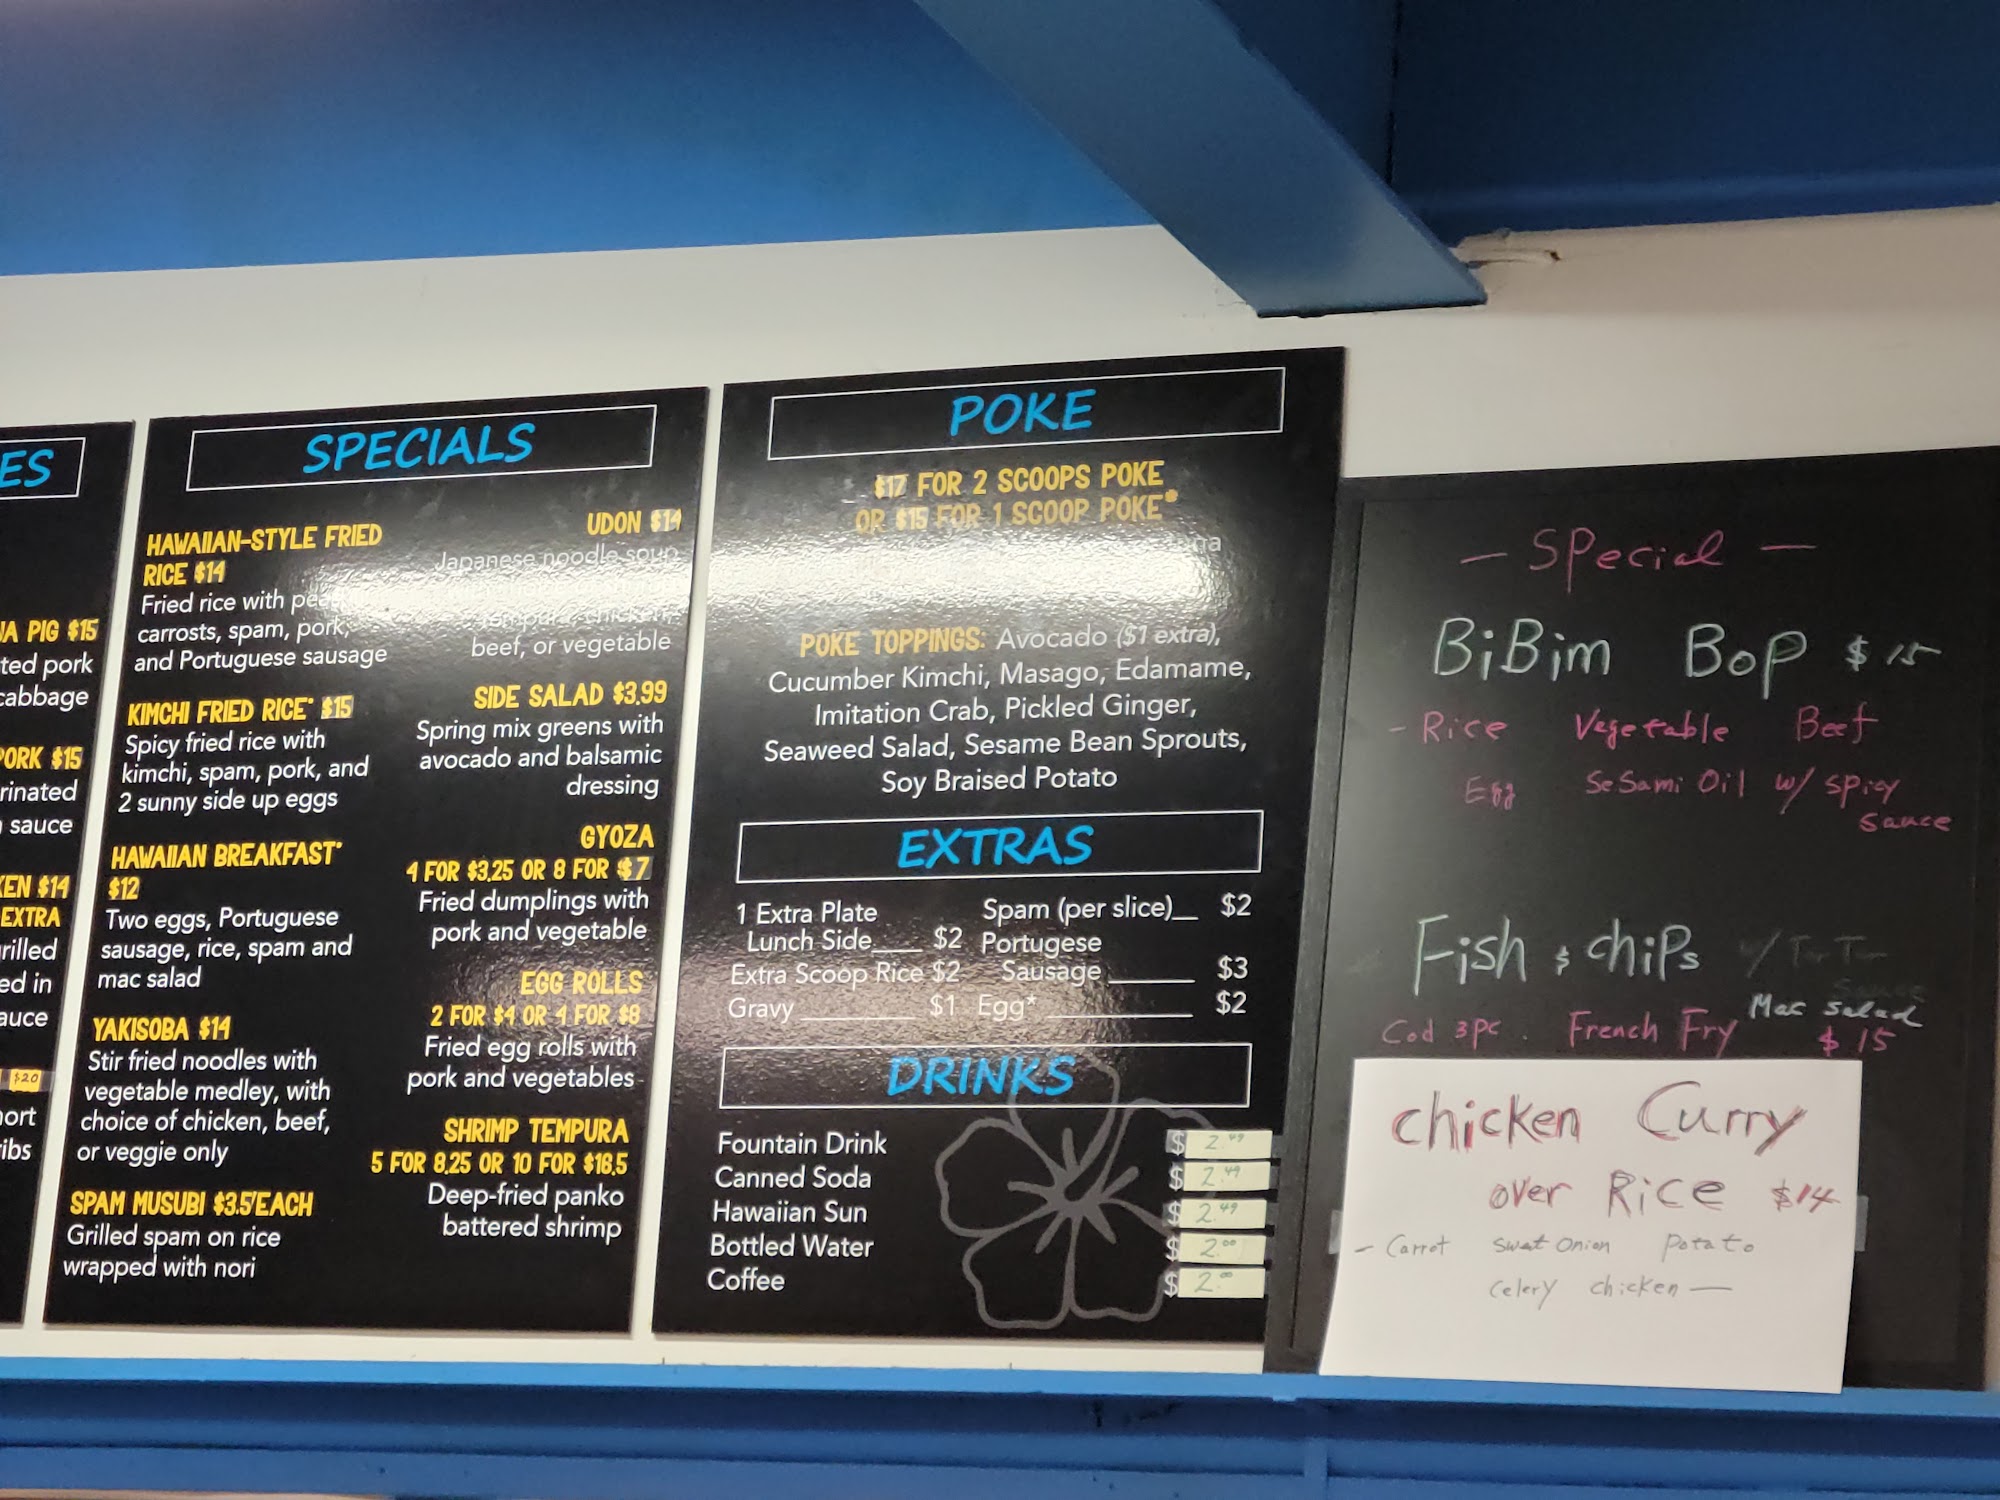 ES
A PIG $15
ted pork
cabbage
ORK $15
rinated
sauce
KEN $14
EXTRA
rilled
ed in
auce
$20
ort
ibs
SPECIALS
HAWAIIAN-STYLE FRIED
RICE $14
Fried rice with peas
carrosts, spam, pork,
and Portuguese sausage
KIMCHI FRIED RICE* $15
Spicy fried rice with
kimchi, spam, pork, and
2 sunny side up eggs
HAWAIIAN BREAKFAST*
$12
Two eggs, Portuguese
sausage, rice, spam and
mac salad
YAKISOBA $14
Stir fried noodles with
vegetable medley, with
choice of chicken, beef,
or veggie only
SPAM MUSUBI $3.5/EACH
Grilled spam on rice
wrapped with nori
UDON $14
Japanese noodle soup
tempura, chicken,
beef, or vegetable
SIDE SALAD $3.99
Spring mix greens with
avocado and balsamic
dressing
GYOZA
4 FOR $3.25 OR 8 FOR $7
Fried dumplings with
pork and vegetable
EGG ROLLS
2 FOR $4 OR 4 FOR $8
Fried egg rolls with
pork and vegetables
SHRIMP TEMPURA
5 FOR 8.25 OR 10 FOR $16.5
Deep-fried panko
battered shrimp
POKE
$17 FOR 2 SCOOPS POKE
OR $15 FOR 1 SCOOP POKE*
POKE TOPPINGS: Avocado ($1 extra),
Cucumber Kimchi, Masago, Edamame,
Imitation Crab, Pickled Ginger,
Seaweed Salad, Sesame Bean Sprouts,
Soy Braised Potato
EXTRAS
1 Extra Plate
Lunch Side $2
Extra Scoop Rice $2
Gravy $1
Spam (per slice) $2
Portugese
Sausage $3
Egg* $2
DRINKS
Fountain Drink $ 2.49
Canned Soda $ 2.49
Hawaiian Sun $ 2.49
Bottled Water $ 2.00
Coffee $ 2.00
- Special -
BiBim Bop $15
- Rice Vegetable Beef
Egg SeSami Oil w/ Spicy
Sauce
Fish & Chips w/ Tar Tar
Sauce
Mac Salad
Cod 3pc. French Fry $15
chicken Curry
over Rice $14
- Carrot Sweet Onion Potato
Celery chicken -